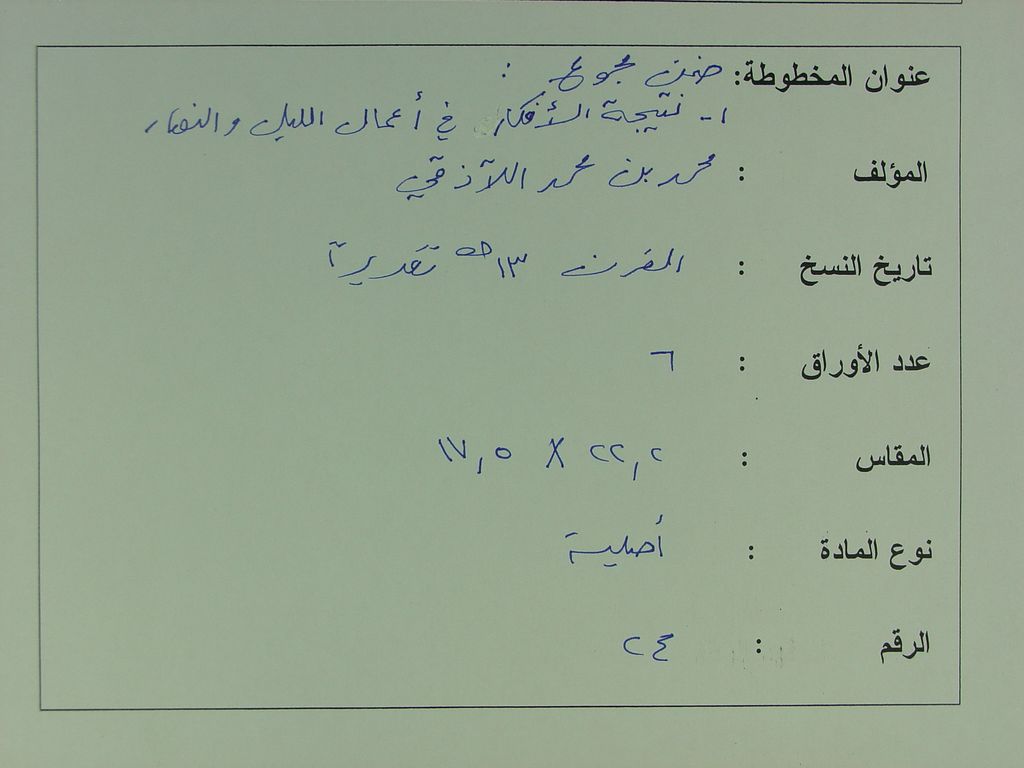 عنوان المخطوطة: ضمن مجموع :
١- نتيجة الأفكار في أعمال الليل والنهار
المؤلف : محمد بن محمد اللآذقي
تاريخ النسخ : القرن ١٣هـ تقديراً
عدد الأوراق : ٦
المقاس : ٢٢,٢ X ١٧,٥
نوع المادة : أصلية
الرقم : ٢ع